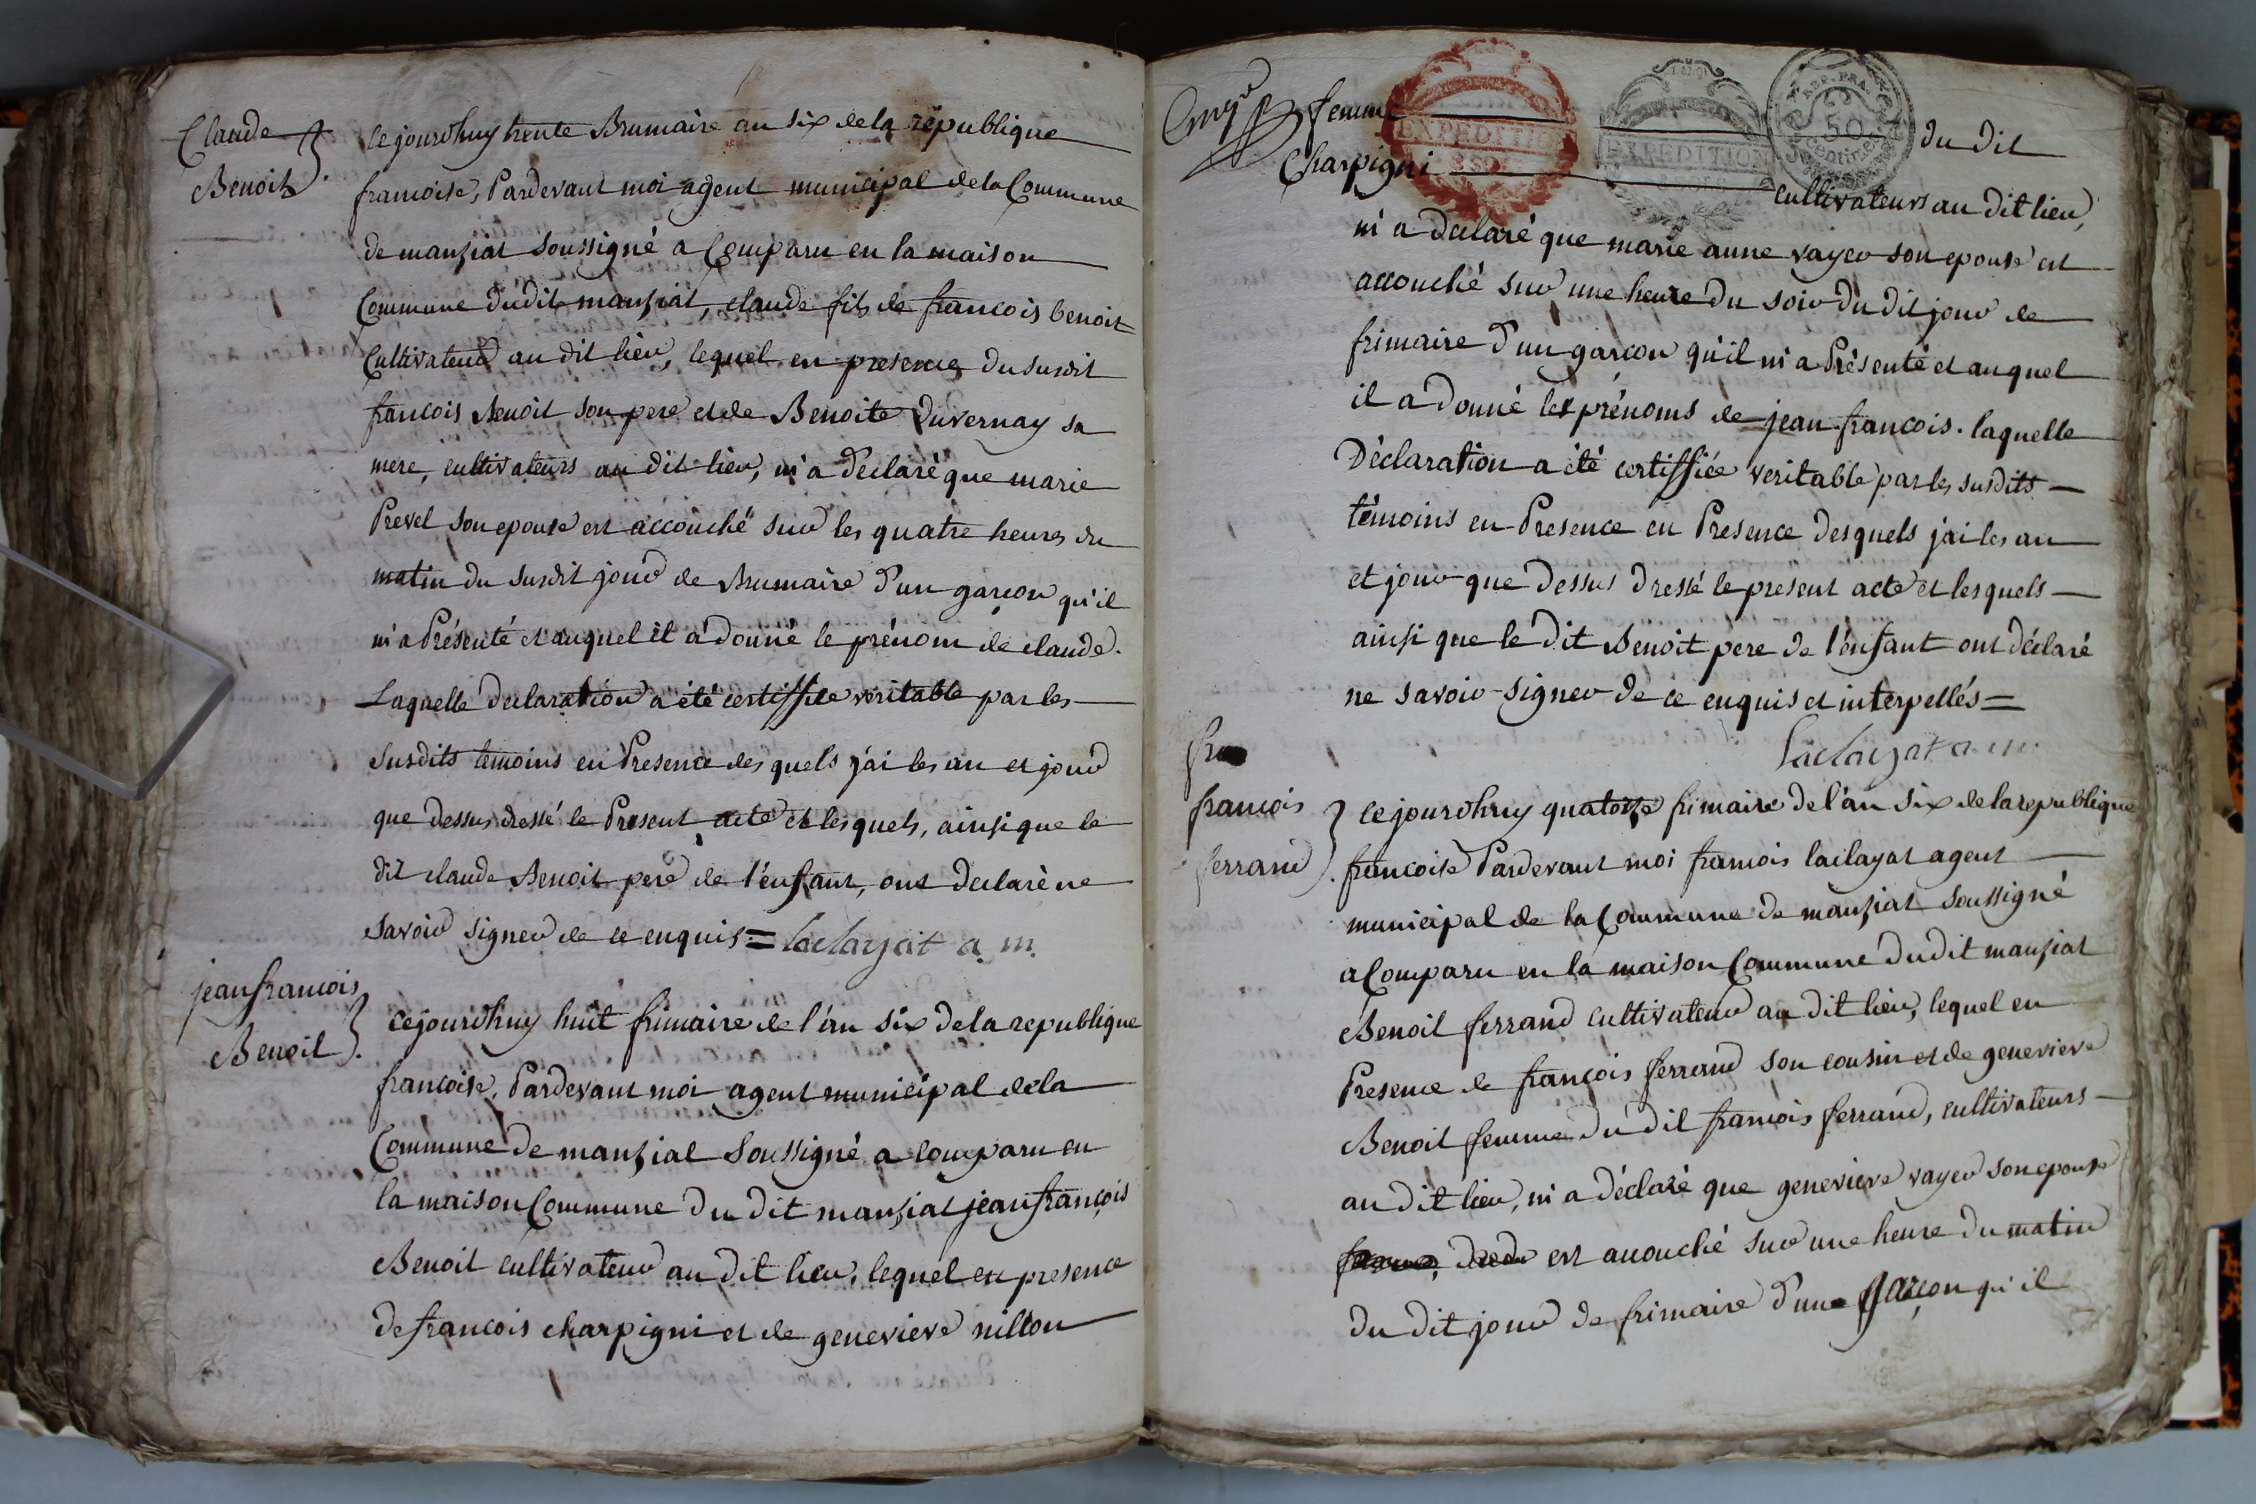 Claude
Benoit
cejourdhuy trente Brumaire an six de la république
francoise, Pardevant moi agent municipal de la Commune
de manziat soussigné a Comparu en la maison
Commune dudit manziat, claude fils de francois benoit
Cultivateur au dit lieu, lequel en presence du susdit
francois Benoit son pere et de Benoite Duvernay sa
mere, cultivateurs au dit lieu, m'a déclaré que marie
Prevel son epouse est accouché sur les quatre heures du
matin du susdit jour de Brumaire d'un garcon qu'il
m'a Présenté et auquel il a donné le prénom de claude.
Laquelle declaration a été certiffiée veritable par les
susdits temoins en Presence des quels j'ai les an et jour
que dessus dressé le Present acte et lesquels, ainsi que le
dit claude Benoit pere de l'enfant, ont declaré ne
savoir signer de ce enquis = laclayat a. m.
jean francois
Benoit
cejourdhuy huit frimaire de l'an six de la republique
francoise, Pardevant moi agent municipal de la
Commune de manziat Soussigné a comparu en
la maison Commune du dit manziat jean françois
Benoit cultivateur au dit lieu, lequel en presence
de francois charpigni et de genevieve nillon
femme du dit
Charpigni cultivateurs au dit lieu,
EXPEDITION
EXPEDITION
REP. FRA.
50
Centimes
m'a declaré que marie anne vayer son epouse est
accouché sur une heure du soir du dit jour de
frimaire d'un garcon qu'il m'a Présenté et auquel
il a donné les prénoms de jean francois. laquelle
Déclaration a été certiffiée veritable par les susdits
témoins en Presence en Presence desquels j'ai les an
et jour que dessus dressé le present acte et lesquels
ainsi que le dit Benoit pere de l'enfant ont déclaré
ne savoir signer de ce enquis et interpellés =
laclayat a. m.
francois
ferrand
cejourdhuy quatorze frimaire de l'an six de la republique
francoise Pardevant moi francois laclayat agent
municipal de la Commune de manziat soussigné
a Comparu en la maison Commune dudit manziat
Benoit ferrand cultivateur au dit lieu, lequel en
Presence de françois ferrand son cousin et de genevieve
Benoit femme du dit francois ferrand, cultivateurs
au dit lieu, m'a déclaré que genevieve vayer son epouse
est accouché sur une heure du matin
du dit jour de frimaire d'une garçon qu'il